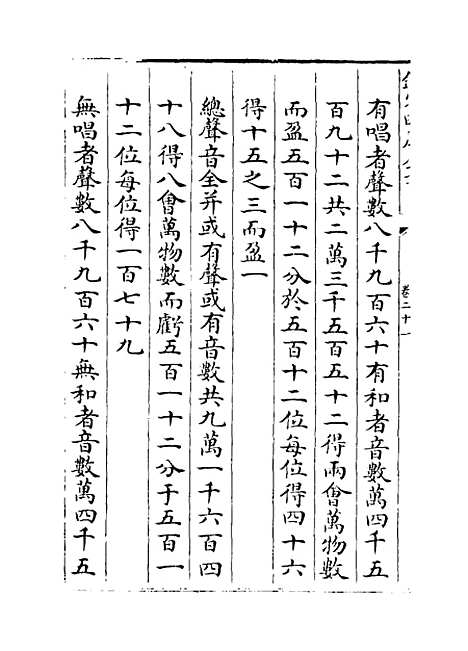 有唱者聲數八千九百六十有和者音數萬四千五
百九十二共二萬三千五百五十二得兩㑹萬物數
而盈五百一十二分於五百十二位每位得四十六
得十五之三而盈一
總聲音全并或有聲或有音數共九萬一千六百四
十八得八㑹萬物數而虧五百一十二分于五百一
十二位每位得一百七十九
無唱者聲數八千九百六十無和者音數萬四千五
卷二十一